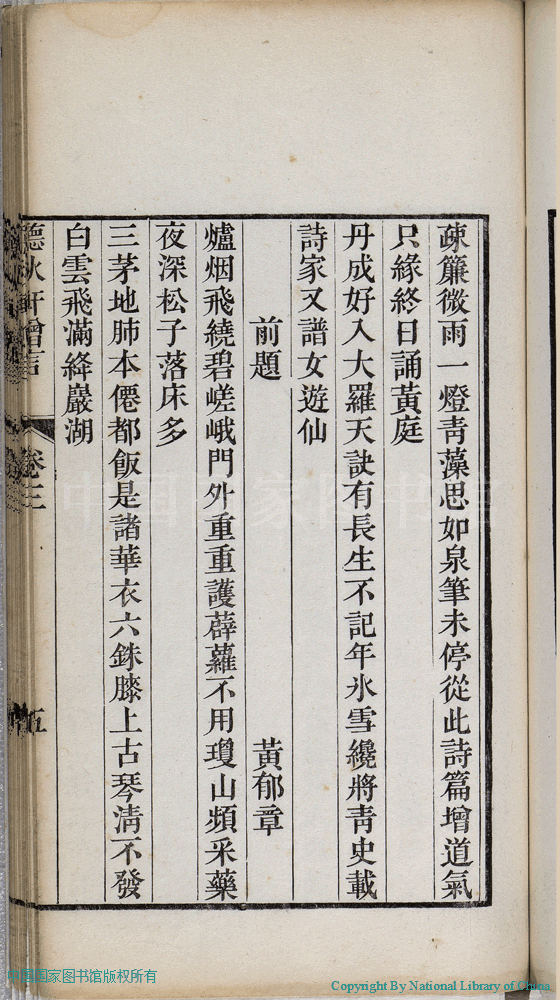 疎簾微雨一燈青藻思如泉筆未停從此詩篇增道氣
只緣終日誦黃庭
丹成好入大羅天訣有長生不記年氷雪纔將青史載
詩家又譜女遊仙
前題　黃郁章
爐烟飛繞碧嵯峨門外重重護薜蘿不用瓊山頻采藥
夜深松子落床多
三茅地肺本僊都飯是諸華衣六銖膝上古琴清不發
白雲飛滿絳巖湖
聽秋軒贈言 卷三 五
中国国家图书馆
中国国家图书馆版权所有
Copyright By National Library of China